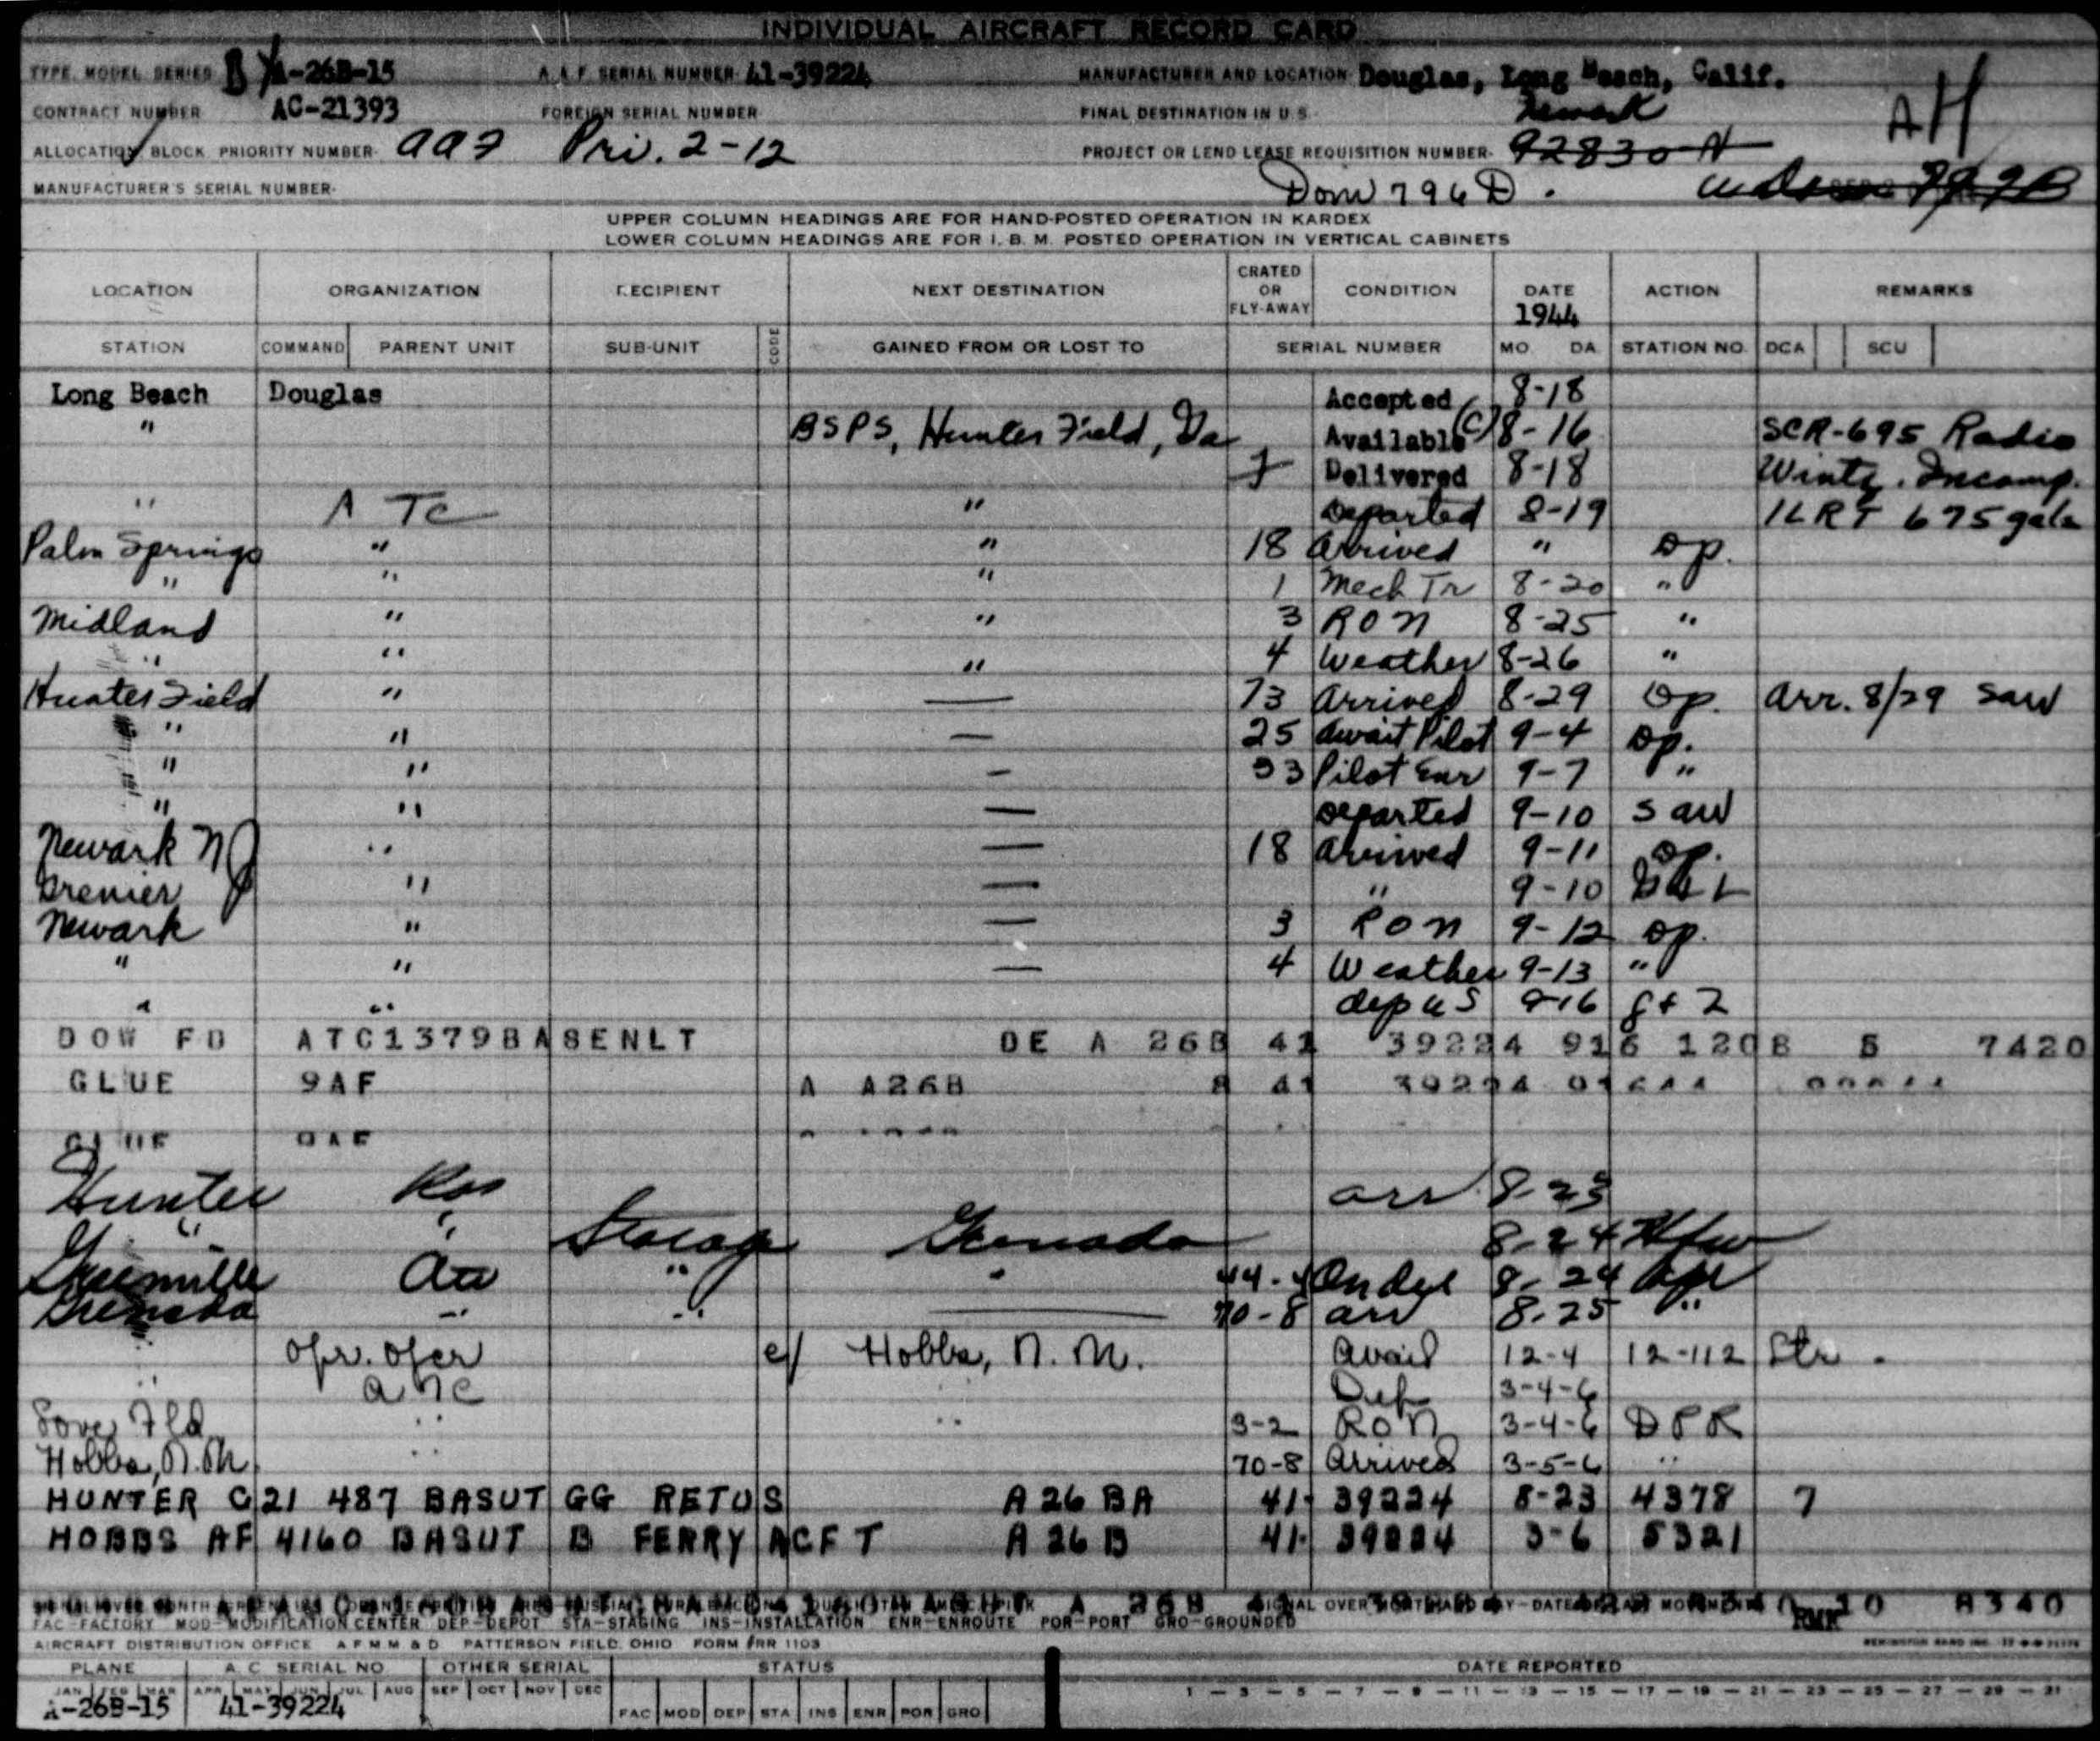 INDIVIDUAL AIRCRAFT RECORD CARD
TYPE, MODEL, SERIES B A-26B-15 A.A.F. SERIAL NUMBER- 41-39224 MANUFACTURER AND LOCATION- Douglas, Long Beach, Calif.
CONTRACT NUMBER AC-21393 FOREIGN SERIAL NUMBER FINAL DESTINATION IN U.S. Newark AH
ALLOCATION BLOCK PRIORITY NUMBER- Pri. 2-12 PROJECT OR LEND LEASE REQUISITION NUMBER- 92830-N
MANUFACTURER'S SERIAL NUMBER- Dom 796D.
UPPER COLUMN HEADINGS ARE FOR HAND-POSTED OPERATION IN KARDEX
LOWER COLUMN HEADINGS ARE FOR I.B.M. POSTED OPERATION IN VERTICAL CABINETS
LOCATION ORGANIZATION RECIPIENT NEXT DESTINATION CRATED OR FLY-AWAY CONDITION DATE 1944 ACTION REMARKS
STATION COMMAND PARENT UNIT SUB-UNIT CODE GAINED FROM OR LOST TO SERIAL NUMBER MO. DA. STATION NO. DCA SCU
Long Beach Douglas Accepted 8-18
" BSPS, Hunter Field, Ga Available (C) 8-16 SCR-695 Radio
Delivered 8-18 Wintz. Incomp.
" A TC " Departed 8-19 1LRT 675 gals
Palm Springs " " 18 Arrived " Op.
" " " 1 Mech Tr 8-20 "
Midland " " 3 RON 8-25 "
" " " 4 Weather 8-26 "
Hunter Field " — 73 Arrived 8-29 Op. Arr. 8/29 saw
" " — 25 Await Pilot 9-4 Op.
" " — 33 Pilot Enr 9-7 "
" " — Departed 9-10 Saw
Newark NJ " — 18 Arrived 9-11 Op.
Grenier " — " 9-10
Newark " — 3 RON 9-12 Op.
" " — 4 Weather 9-13 "
" " dep US 9-16
DOW FD ATC1379BASENLT DE A 26B 41 39224 916 1208 5 7420
GLUE 9AF A A26B 8 41 39224
GLUE 9AF
Hunter arr 8-23
" " Storage Grenada 8-24
Greenville " " 44-4 8-24
Grenada " " — 70-8 arr 8-25 "
" Opr. Ofcr Hobbs, N. M. Avail 12-4 12-112 Str.
" ATC Dep 3-4-6
Love Fld " " 3-2 RON 3-4-6 DPR
Hobbs, N.M. " 70-8 Arrived 3-5-6 "
HUNTER G 21 487 BASUT GG RETUS A26BA 41- 39224 8-23 4378 7
HOBBS AF 4160 BASUT B FERRY ACFT A26B 41- 39224 3-6 5321
FAC-FACTORY MOD-MODIFICATION CENTER DEP-DEPOT STA-STAGING INS-INSTALLATION ENR-ENROUTE POR-PORT GRO-GROUNDED
AIRCRAFT DISTRIBUTION OFFICE A F M M & D PATTERSON FIELD, OHIO FORM #RR 1103
PLANE A.C. SERIAL NO. OTHER SERIAL STATUS DATE REPORTED
JAN FEB MAR APR MAY JUN JUL AUG SEP OCT NOV DEC 1 – 3 – 5 – 7 – 9 – 11 – 13 – 15 – 17 – 19 – 21 – 23 – 25 – 27 – 29 – 31
A-26B-15 41-39224 FAC MOD DEP STA INS ENR POR GRO